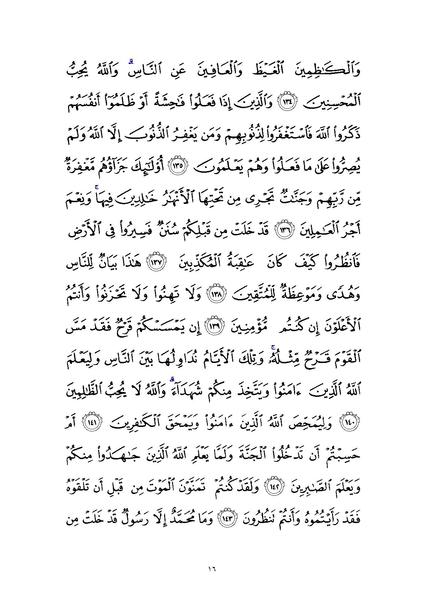 وَٱلۡكَٰظِمِينَ ٱلۡغَيۡظَ وَٱلۡعَافِينَ عَنِ ٱلنَّاسِۗ وَٱللَّهُ يُحِبُّ
ٱلۡمُحۡسِنِينَ ١٣٤ وَٱلَّذِينَ إِذَا فَعَلُواْ فَٰحِشَةً أَوۡ ظَلَمُوٓاْ أَنفُسَهُمۡ
ذَكَرُواْ ٱللَّهَ فَٱسۡتَغۡفَرُواْ لِذُنُوبِهِمۡ وَمَن يَغۡفِرُ ٱلذُّنُوبَ إِلَّا ٱللَّهُ وَلَمۡ
يُصِرُّواْ عَلَىٰ مَا فَعَلُواْ وَهُمۡ يَعۡلَمُونَ ١٣٥ أُوْلَٰٓئِكَ جَزَآؤُهُم مَّغۡفِرَةٞ
مِّن رَّبِّهِمۡ وَجَنَّٰتٞ تَجۡرِي مِن تَحۡتِهَا ٱلۡأَنۡهَٰرُ خَٰلِدِينَ فِيهَاۚ وَنِعۡمَ
أَجۡرُ ٱلۡعَٰمِلِينَ ١٣٦ قَدۡ خَلَتۡ مِن قَبۡلِكُمۡ سُنَنٞ فَسِيرُواْ فِي ٱلۡأَرۡضِ
فَٱنظُرُواْ كَيۡفَ كَانَ عَٰقِبَةُ ٱلۡمُكَذِّبِينَ ١٣٧ هَٰذَا بَيَانٞ لِّلنَّاسِ
وَهُدٗى وَمَوۡعِظَةٞ لِّلۡمُتَّقِينَ ١٣٨ وَلَا تَهِنُواْ وَلَا تَحۡزَنُواْ وَأَنتُمُ
ٱلۡأَعۡلَوۡنَ إِن كُنتُم مُّؤۡمِنِينَ ١٣٩ إِن يَمۡسَسۡكُمۡ قَرۡحٞ فَقَدۡ مَسَّ
ٱلۡقَوۡمَ قَرۡحٞ مِّثۡلُهُۥۚ وَتِلۡكَ ٱلۡأَيَّامُ نُدَاوِلُهَا بَيۡنَ ٱلنَّاسِ وَلِيَعۡلَمَ
ٱللَّهُ ٱلَّذِينَ ءَامَنُواْ وَيَتَّخِذَ مِنكُمۡ شُهَدَآءَۗ وَٱللَّهُ لَا يُحِبُّ ٱلظَّٰلِمِينَ
١٤٠ وَلِيُمَحِّصَ ٱللَّهُ ٱلَّذِينَ ءَامَنُواْ وَيَمۡحَقَ ٱلۡكَٰفِرِينَ ١٤١ أَمۡ
حَسِبۡتُمۡ أَن تَدۡخُلُواْ ٱلۡجَنَّةَ وَلَمَّا يَعۡلَمِ ٱللَّهُ ٱلَّذِينَ جَٰهَدُواْ مِنكُمۡ
وَيَعۡلَمَ ٱلصَّٰبِرِينَ ١٤٢ وَلَقَدۡ كُنتُمۡ تَمَنَّوۡنَ ٱلۡمَوۡتَ مِن قَبۡلِ أَن تَلۡقَوۡهُ
فَقَدۡ رَأَيۡتُمُوهُ وَأَنتُمۡ تَنظُرُونَ ١٤٣ وَمَا مُحَمَّدٌ إِلَّا رَسُولٞ قَدۡ خَلَتۡ مِن
١٦